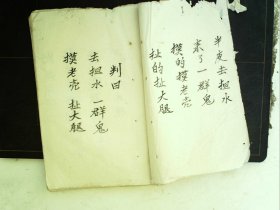 半夜去担水
来了一群鬼
摸的摸老壳
扯的扯大腿
判曰
去担水一群鬼
摸老壳扯大腿